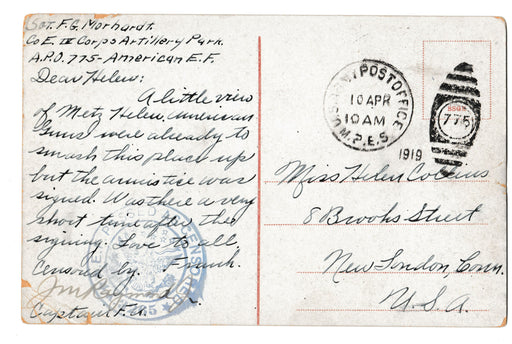 Sgt. F.G. Morhardt.
Co E. IV Corps Artillery Park.
A.P.O. 775 - American E.F.
Dear Helen:
A little view
of Metz Helen, american
Guns were already to
smash this place up
but the armistice was
signed. Was there a very
short time after the
signing. Love to all,
Censored by. Frank.
Captain F.A.
U.S. ARMY POST OFFICE
10 APR
10 AM
M.P.E.S.
1919
775
Miss Helen Collins
8 Brooks Street
New London, Conn.
U.S.A.